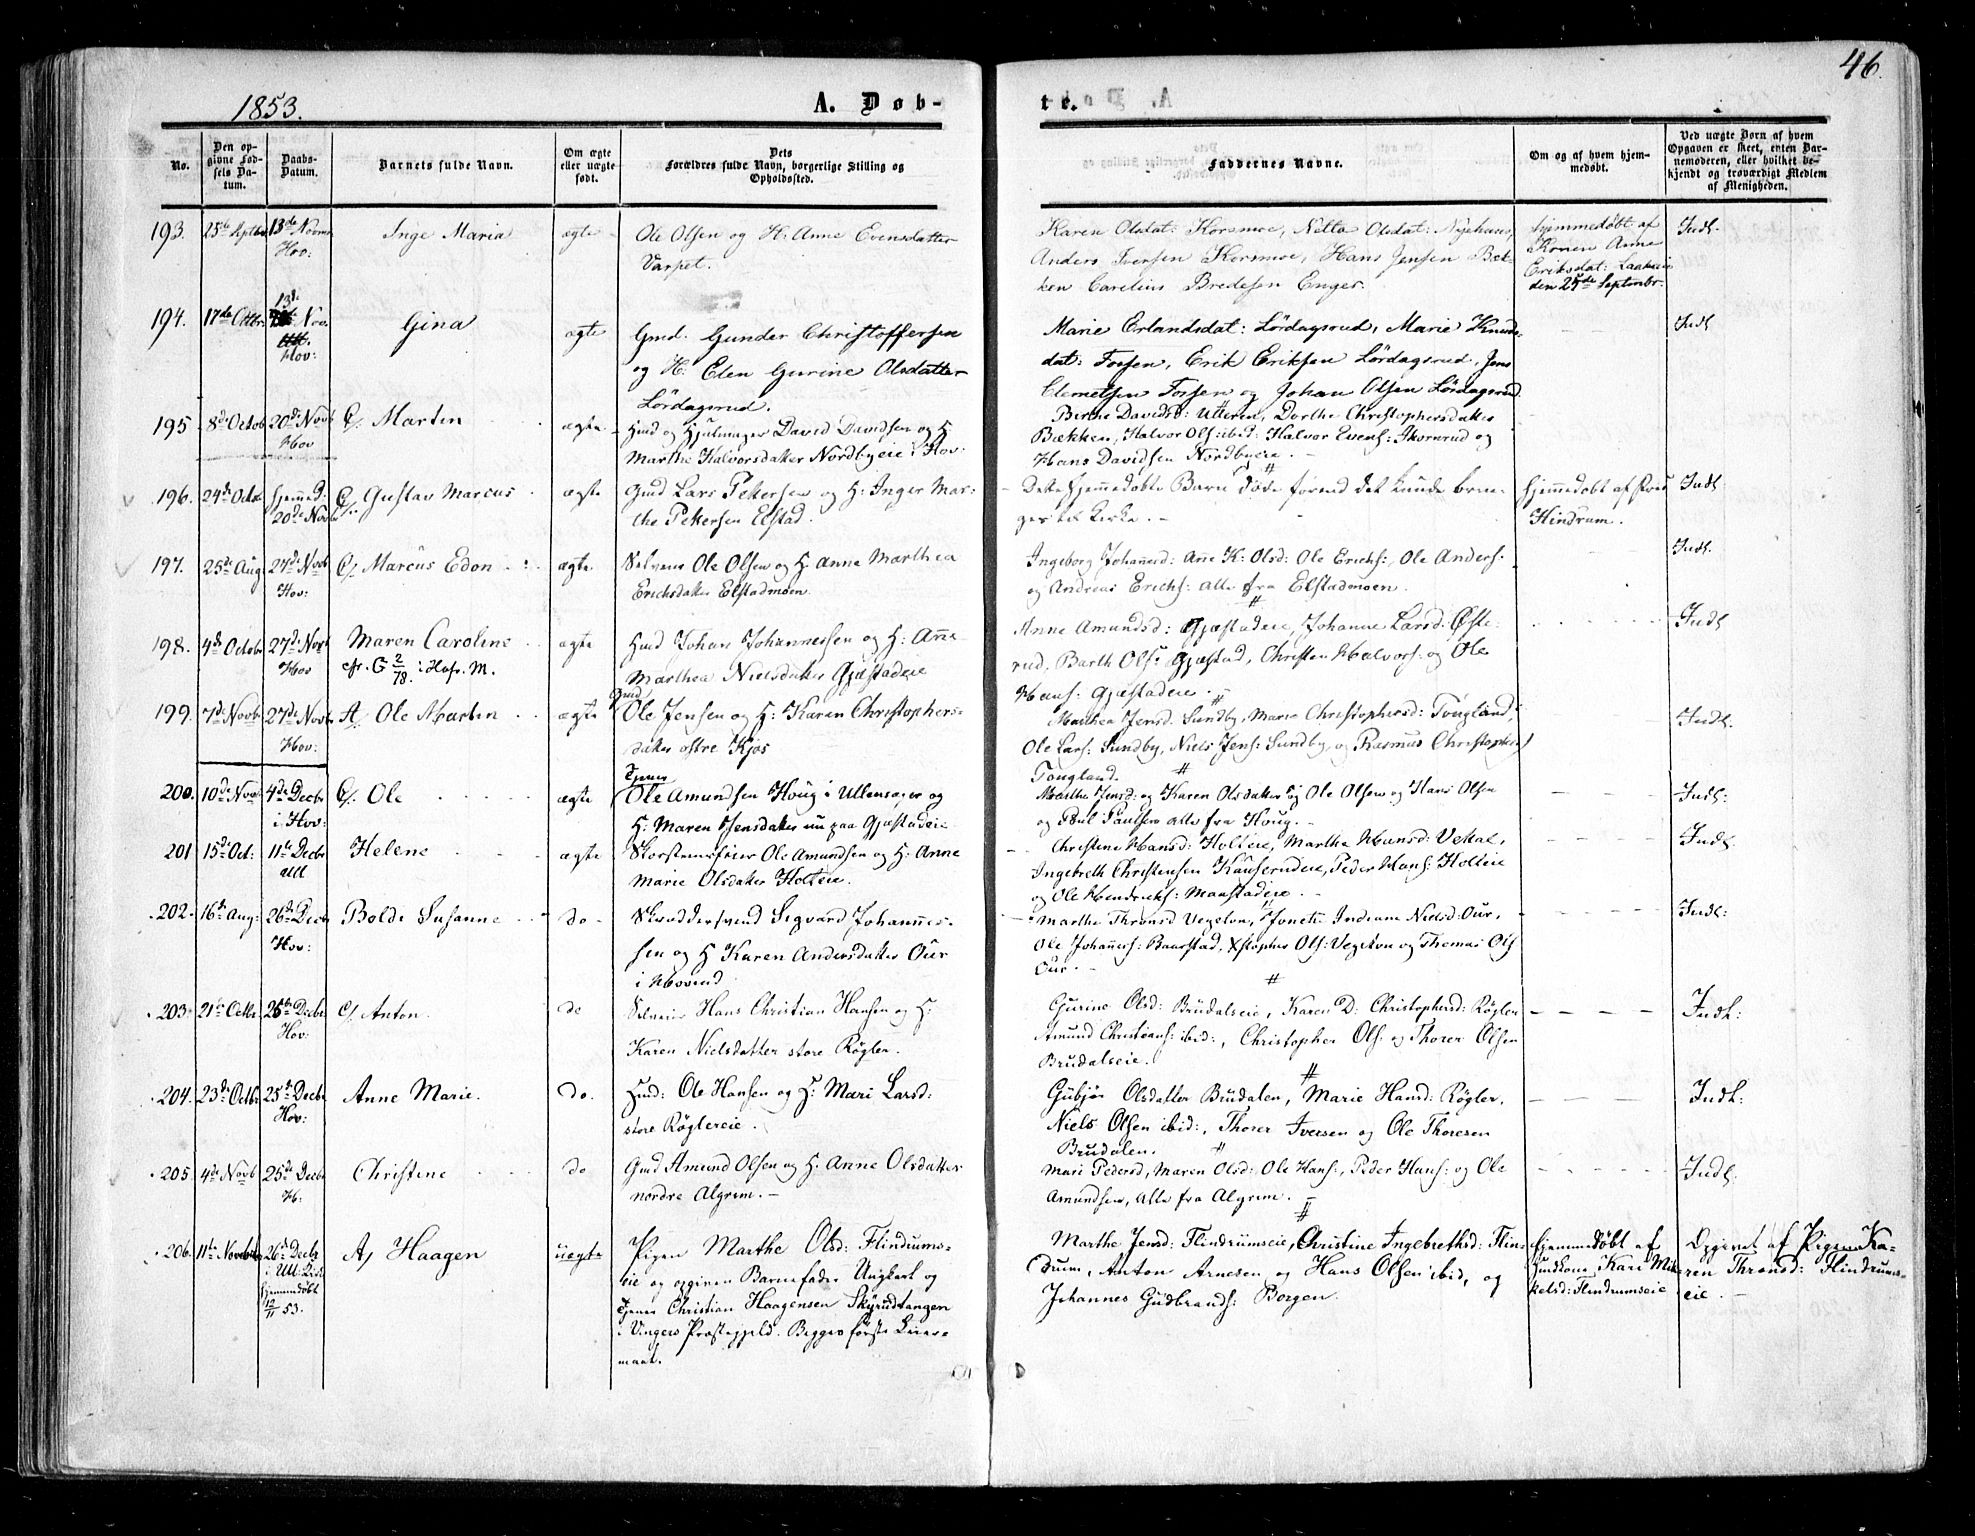 46.
1853.
A. Døb-
te.
No.
Den op-
givne Fød-
sels Da-
tum.
Daabs-
Datum.
Barnets fulde Navn.
Om ægte
eller uægte
født.
Dets
Forældres fulde Navn, borgerlige Stilling og
Opholdsted.
Faddernes Navne.
Om og af hvem hjem-
medøbt.
Ved uægte Born af hvem
Opgaven er skeet, enten Bar-
nemoderen, eller hvilket be-
kjendt og troværdigt Medlem
af Menigheden.
193. 25de Septbr 13de Novbr
Hov:
Inge Maria ægte
Ole Olsen og H: Anne Evensdatter
Varpet.
Karen Olsdat: Korsmoe, Netta Olsdat: Nyehuus,
Anders Iversen Korsmoe, Hans Jensen Bæk-
ken Carelius Bredesen Enger.
hjemmedøbt af
Konen Anne
Eriksdat:
den 25de Septembr.
Indl.
194. 17de Octbr. 13de Nov.
Hov:
Gina ægte
Gmd. Gunder Christoffersen
og H: Elen Gurine Olsdatter
Lørdagsrud.
Marie Erlandsdat: Lørdagsrud, Marie Knuds-
dat: Fossen, Erik Eriksen Lørdagsrud, Jens
Clemetsen Fossen og Johan Olsen Lørdagsrud.
Indl
195 8de Octob 20de Novb
Hov
C/. Martin ægte
Hmd og Hjulmager David Davidsen og H
Marthe Halvorsdatter Nordbyeie i Hov:
Birthe Davidsd: Utteren, Dorthe Christophersdatter
Bækken, Halvor Ols: ibid: Halvor Evens: Skornrud og
Hans Davidsen Nordbyeie.
196. 24de Octbr hjemmed.
20de Novbr
C/. Gustav Marcus ægte
Gmd Lars Petersen og H: Inger Mar-
the Petersen Elstad.
Dette hjemmedøbte Barn døde førend det kunde brin-
ges til Kirke.
hjemmedøbt af
Hindrum.
Indl
197. 25de Aug: 27de Novb
Hov:
C/. Marcus Edon ægte
Selveier Ole Olsen og H. Anne Marthea
Ericksdatter Elstadmoen.
Ingeborg Johannesd: Anne K: Olsd: Ole Ericks:, Ole Anders:
og Andreas Ericks: alle fra Elstadmoen.
Indl.
198. 4de Octobr 27de Novb
Hov
Maren Caroline ægte
cfr. G 2/78. : Hofr. M.
Hmd Johan Johannessen og H: Anne
Marthea Nielsdatter Gjæstadeie
Anne Amundsd: Gjæstadeie, Johanne Larsd. Øste-
rud, Barth Ols: Gjæstad, Christen Halvors: og Ole
Hans: Gjæstadeie.
Indl
199. 7de Novb 27de Novb
Hov:
A/ Ole Martin ægte
Gmd
Ole Jensen og H: Karen Christophers-
datter østre Kjos
Marthea Jensd. Sundby, Marie Christophersd: Tougland,
Ole Lars: Sundby, Niels Jens: Sundby og Rasmus Christophers
Tougland.
Indl.
200. 10de Novb 4de Decbr
i Hov:
C/. Ole ægte
Tjener
Ole Amundsen Houg i Ullensager og
H: Maren Jensdatter nu paa Gjæstadeie
Marthe Jensd: og Karen Olsdatter og Ole Olsen og Hans Olsen
og Poul Paulsen alle fra Houg.
Indl:
201 15de Oct: 11te Decbr
Ull
Helene ægte
Skorsteensfeier Ole Amundsen og H: Anne
Marie Olsdatter Holteie.
Christine Hansd: Holteie, Marthe Hansd: Vekal,
Ingebreth Christensen Kauserudeie, Peder Hans: Holteie
og Ole Hendricks: Maastadeie.
Indl.
202. 16de Aug: 26de Decbr
Hov:
Bolde Susanne do
Skræddersvend Sigvard Johannes-
sen og H Karen Andersdatter Our
i Hovind
Marthe Thronsd Vegelvn, Jonette Indiane Nielsd: Our,
Ole Johannes: Baarstad, Xstopher Ols: Vegelvn og Thomas Ols
Our.
Indl:
203. 21de Octbr 26de Decbr
Hov:
C/ Anton. do
Selveier Hans Christian Hansen og H:
Karen Nielsdatter store Røgler.
Gurine Olsd: Brudalseie, Karen D: Christophersd: Røgler
Amund Christians: ibid:, Christopher Ols: og Thorer Olsen
Brudalseie.
Indl:
204. 23de Octbr 25de Decbr
Hov:
Anne Marie. do.
Hmd: Ole Hansen og H: Mari Larsd:
store Røglereie.
Gubjør Olsdatter Brudalen, Marie Hansd: Røgler,
Niels Olsen ibid:, Thorer Iversen og Ole Thoresen
Brudalen.
Indl:
205. 4de Novb 25de Decbr
H:
Christine do
Gmd Amund Olsen og H. Anne Olsdatter
nordre Algrim.
Mari Pedersd, Maren Olsd: Ole Hans:, Peder Hans: og Ole
Amundsen, alle fra Algrim.
Indl.
206. 11te Novembr 26de Decbr
i Ull: Kirke
hjemmedøbt
12/11 53.
A/ Haagen uægte
Pigen Marthe Olsd: Flindrums-
eie og opgiven Barnefader Ungkarl og
Tjener Christian Haagensen Skyrudtangen
i Vingers Præstegjeld. Begges første Leier-
maal.
Marthe Jensd: Flindrumseie, Christine Ingebrethsd: Flin-
drum, Anton Arnesen og Hans Olsen ibid, og
Johannes Gudbrands: Borgen.
hjemmedøbt af
Huuskone Kari Mik-
kelsd: Flindrumseie
Opgivet af Pigen Ka-
ren Thronsd: Flindrums-
eie.